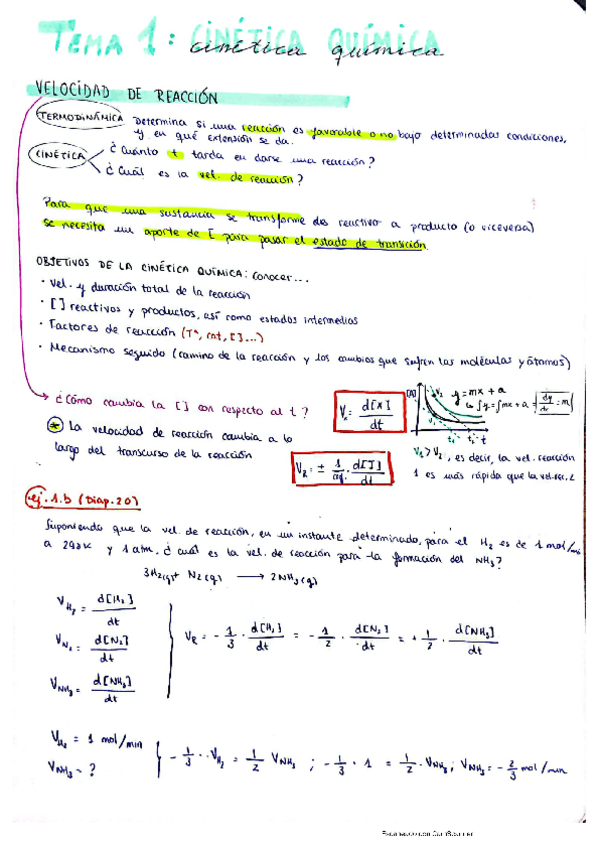 TEMA 1: CINÉTICA QUÍMICA
cinética química
VELOCIDAD DE REACCIÓN
TERMODINÁMICA Determina si una reacción es favorable o no bajo determinadas condiciones,
y en qué extensión se da.
CINÉTICA ¿Cuánto t tarda en darse una reacción?
¿Cuál es la vel. de reacción?
Para que una sustancia se transforme de reactivo a producto (o viceversa)
se necesita un aporte de E para pasar el estado de transición.
OBJETIVOS DE LA CINÉTICA QUÍMICA: conocer...
· Vel. y duración total de la reacción
· [ ] reactivos y productos, así como estados intermedios
· Factores de reacción (Tª, cat, [ ]...)
· Mecanismo seguido (camino de la reacción y los cambios que sufren las moléculas y átomos)
¿Cómo cambia la [ ] con respecto al t?
Vx = d[X]/dt
[A] V2 t1 t2 t
y = mx + a
∫y = ∫mx + a dy/dx = m
* La velocidad de reacción cambia a lo
largo del transcurso de la reacción
VR = ± 1/aj · d[J]/dt
V1 > V2, es decir, la vel. reacción
1 es más rápida que la vel. rec. 2
ej. 1.b (Diap. 20)
Suponiendo que la vel. de reacción, en un instante determinado, para el H2 es de 1 mol/min
a 298K y 1 atm, ¿cuál es la vel. de reacción para la formación del NH3?
3H2(g) + N2(g) → 2NH3(g)
VH2 = d[H2]/dt
VN2 = d[N2]/dt
VNH3 = d[NH3]/dt
VR = - 1/3 · d[H2]/dt = - 1/2 · d[N2]/dt = + 1/2 · d[NH3]/dt
VH2 = 1 mol/min
VNH3 = ?
- 1/3 · VH2 = 1/2 VNH3 ; - 1/3 · 1 = 1/2 · VNH3 ; VNH3 = - 2/3 mol/min
Escaneado con CamScanner